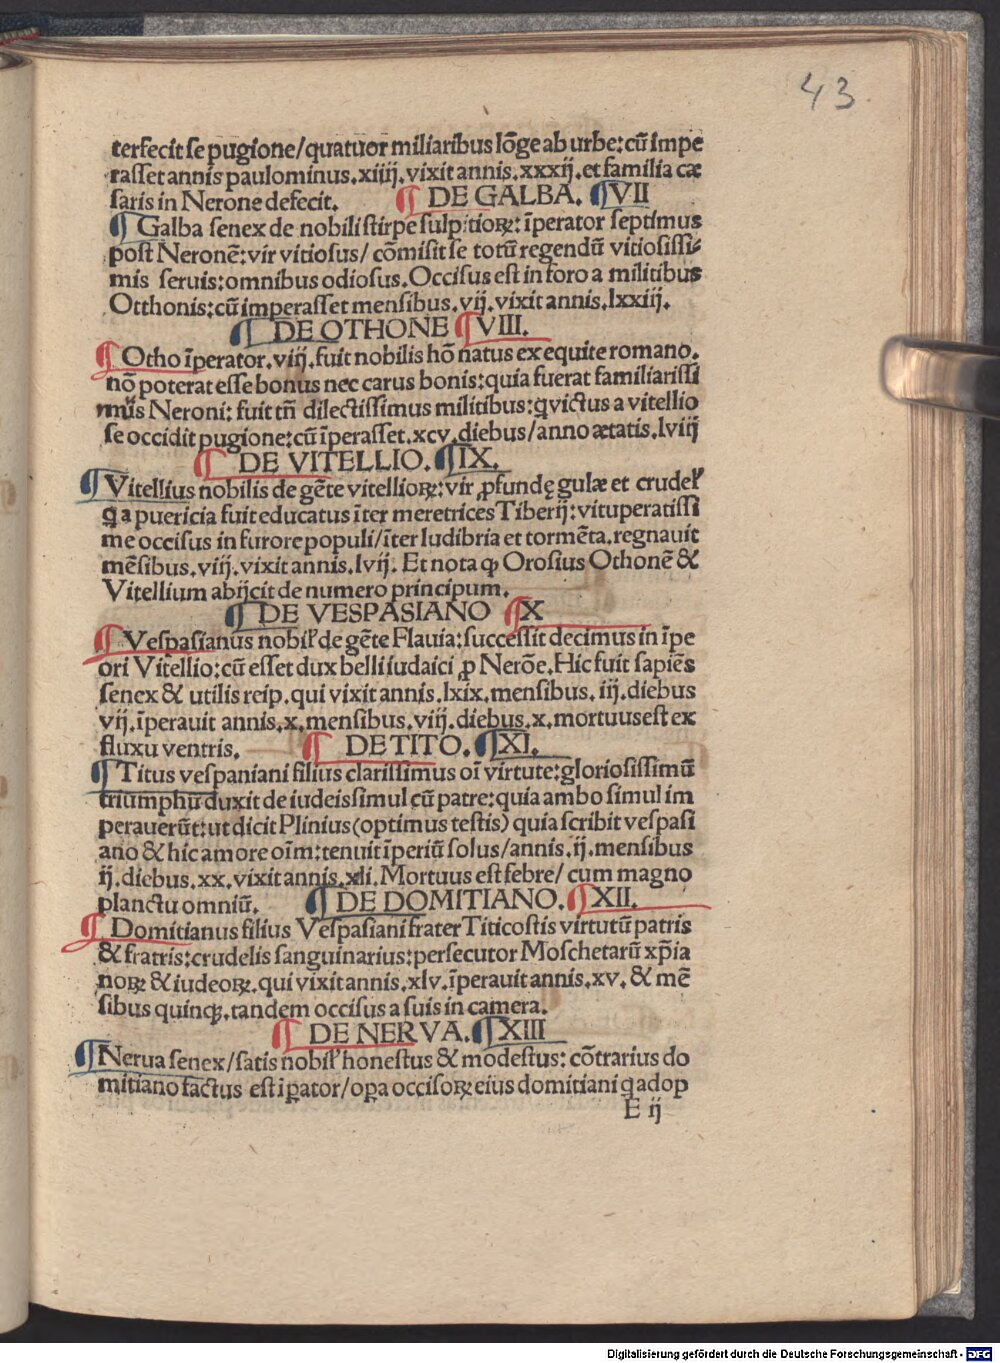 43
terfecit se pugione/quatuor miliaribus lōge ab urbe:cū impe
rasset annis paulominus.xiiij.vixit annis.xxxij.et familia cæ
saris in Nerone defecit. ¶ DE GALBA. ¶ VII
¶ Galba senex de nobili stirpe sulpitioꝝ: īperator septimus
post Neronē:vir vitiosus/ cōmisit se totū regendū vitiosissi⸗
mis seruis:omnibus odiosus.Occisus est in foro a militibus
Otthonis:cū imperasset mensibus.vij.vixit annis.lxxiij.
¶ DE OTHONE ¶ VIII.
¶ Otho īperator.viij.fuit nobilis hō natus ex equite romano.
nō poterat esse bonus nec carus bonis:quia fuerat familiarissi
mus Neroni: fuit tn̄ dilectissimus militibus:qvictus a vitellio
se occidit pugione:cū īperasset.xcv.diebus/anno ætatis.lviij
¶ DE VITELLIO. ¶ IX.
¶ Vitellius nobilis de gēte vitellioꝝ:vir ꝓfundę gulæ et crudelꝭ
ꝗ a puericia fuit educatus īter meretrices Tiberij:vituperatissi
me occisus in furore populi/īter ludibria et tormēta.regnauit
mēsibus.viij.vixit annis.lvij. Et nota ꝙ Orosius Othonē &
Vitellium abijcit de numero principum.
¶ DE VESPASIANO ¶ X
¶ Vespasianus nobilꝭ de gēte Flauia:successit decimus in īpe
ori Vitellio:cū esset dux belli iudaici ꝓ Nerōe.Hic fuit sapiēs
senex & utilis reip.qui vixit annis.lxix.mensibus. iij.diebus
vij.īperauit annis.x.mensibus.viij.diebus.x.mortuus est ex
fluxu ventris. ¶ DE TITO. ¶ XI.
¶ Titus vespaniani filius clarissimus oī virtute:gloriosissimū
triumphū duxit de iudeis simul cū patre:quia ambo simul im
perauerūt:ut dicit Plinius(optimus testis) quia scribit vespasi
ano & hic amore oīm:tenuit īperiū solus/annis.ij.mensibus
ij.diebus.xx.vixit annis.xli.Mortuus est febre/ cum magno
planctu omniū. ¶ DE DOMITIANO. ¶ XII.
¶ Domitianus filius Vespasiani frater Titi costis virtutū patris
& fratris:crudelis sanguinarius:persecutor Moschetarū xp̄ia
noꝝ & iudeoꝝ.qui vixit annis.xlv.īperauit annis.xv. & mē
sibus quinqꝫ.tandem occisus a suis in camera.
¶ DE NERVA. ¶ XIII
¶ Nerua senex/satis nobilꝭ honestus & modestus: cōtrarius do
mitiano factus est iꝑator/oꝑa occisoꝝ eius domitiani ꝗ adop
E ij
Digitalisierung gefördert durch die Deutsche Forschungsgemeinschaft - DFG